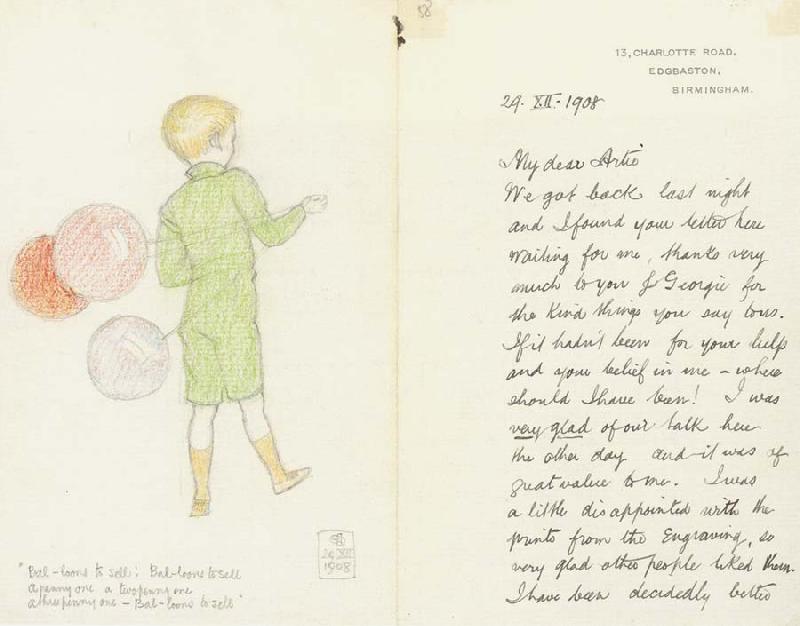 "Bal-loons to sell; Bal-loons to sell
a penny one a twopenny one
a threepenny one – Bal-loons to sell"
29 XII
1908
58
13, CHARLOTTE ROAD.
EDGBASTON,
BIRMINGHAM.
29. XII. 1908
My dear Artie
We got back last night
and I found your letter here
waiting for me, thanks very
much to you & Georgie for
the kind things you say to us.
If it hadn't been for your help
and your belief in me – where
should I have been! I was
very glad of our talk here
the other day and it was of
great value to me. I was
a little disappointed with the
prints from the Engraving, so
very glad other people liked them.
I have been decidedly better